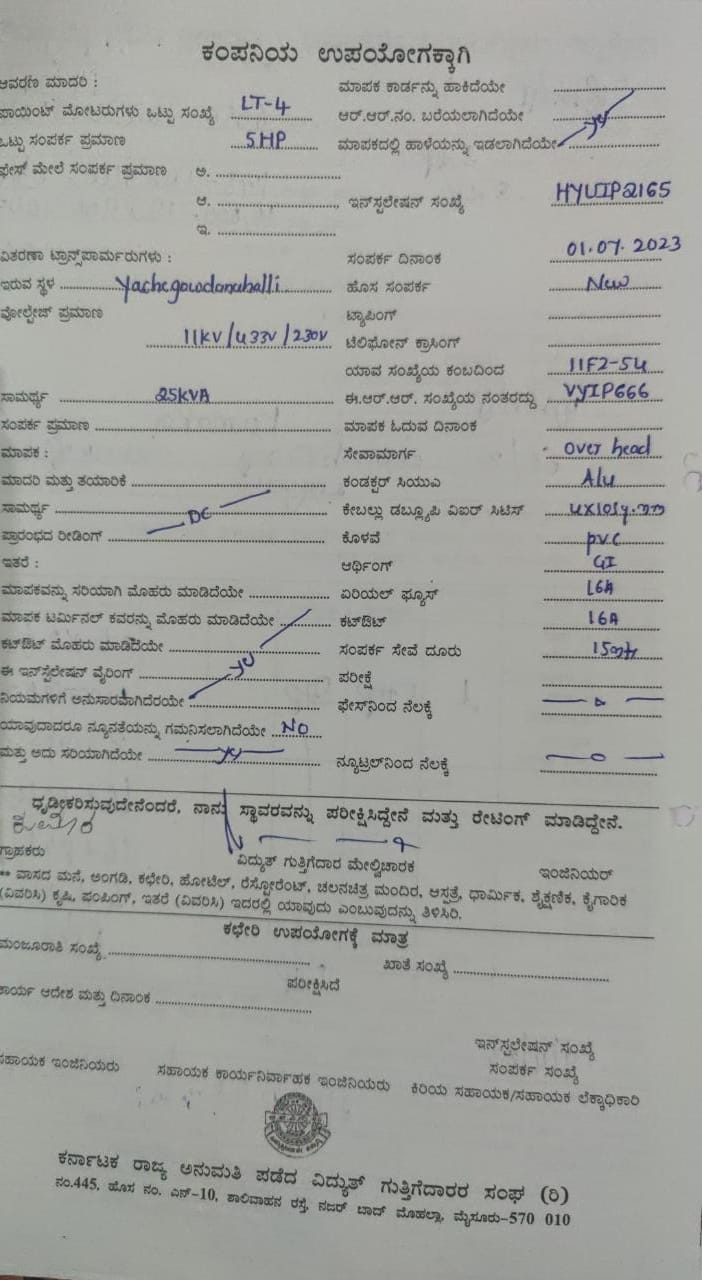 ಕಂಪನಿಯ ಉಪಯೋಗಕ್ಕಾಗಿ
ಆವರಣ ಮಾದರಿ : ಮಾಪಕ ಕಾರ್ಡನ್ನು ಹಾಕಿದೆಯೇ
ಪಾಯಿಂಟ್ ಮೋಟರುಗಳು ಒಟ್ಟು ಸಂಖ್ಯೆ LT-4 ಆರ್.ಆರ್.ನಂ. ಬರೆಯಲಾಗಿದೆಯೇ
ಒಟ್ಟು ಸಂಪರ್ಕ ಪ್ರಮಾಣ 5HP ಮಾಪಕದಲ್ಲಿ ಹಾಳೆಯನ್ನು ಇಡಲಾಗಿದೆಯೇ
ಫೇಸ್ ಮೇಲೆ ಸಂಪರ್ಕ ಪ್ರಮಾಣ ಅ.
ಆ. ಇನ್‌ಸ್ಟಲೇಷನ್ ಸಂಖ್ಯೆ HYUIP2165
ಇ.
ವಿತರಣಾ ಟ್ರಾನ್ಸ್‌ಪಾರ್ಮರುಗಳು : ಸಂಪರ್ಕ ದಿನಾಂಕ 01.07.2023
ಇರುವ ಸ್ಥಳ Yachegowdanahalli ಹೊಸ ಸಂಪರ್ಕ New
ವೋಲ್ಟೇಜ್ ಪ್ರಮಾಣ ಟ್ಯಾಪಿಂಗ್
11KV/433V/230V ಟೆಲಿಫೋನ್ ಕ್ರಾಸಿಂಗ್
ಯಾವ ಸಂಖ್ಯೆಯ ಕಂಬದಿಂದ 11F2-54
ಸಾಮರ್ಥ್ಯ 25KVA ಈ.ಆರ್.ಆರ್. ಸಂಖ್ಯೆಯ ನಂತರದ್ದು VYIP666
ಸಂಪರ್ಕ ಪ್ರಮಾಣ ಮಾಪಕ ಓದುವ ದಿನಾಂಕ
ಮಾಪಕ : ಸೇವಾಮಾರ್ಗ over head
ಮಾದರಿ ಮತ್ತು ತಯಾರಿಕೆ ಕಂಡಕ್ಟರ್ ಸಿಯುಎ Alu
ಸಾಮರ್ಥ್ಯ DC ಕೇಬಲ್ಲು ಡಬ್ಲ್ಯೂಪಿ ವಿಐರ್ ಸಿಟಿಸ್ 4x10sq.mm
ಪ್ರಾರಂಭದ ರೀಡಿಂಗ್ ಕೊಳವೆ pvc
ಇತರೆ : ಆರ್ಥಿಂಗ್ GI
ಮಾಪಕವನ್ನು ಸರಿಯಾಗಿ ಮೊಹರು ಮಾಡಿದೆಯೇ ಏರಿಯಲ್ ಫ್ಯೂಸ್ 16A
ಮಾಪಕ ಟರ್ಮಿನಲ್ ಕವರನ್ನು ಮೊಹರು ಮಾಡಿದೆಯೇ ಕಟ್‌ಔಟ್ 16A
ಕಟ್‌ಔಟ್ ಮೊಹರು ಮಾಡಿದೆಯೇ ಸಂಪರ್ಕ ಸೇವೆ ದೂರು 15mtr
ಈ ಇನ್‌ಸ್ಟಲೇಷನ್ ವೈರಿಂಗ್ ಪರೀಕ್ಷೆ
ನಿಯಮಗಳಿಗೆ ಅನುಸಾರವಾಗಿದೆರಯೇ ಫೇಸ್‌ನಿಂದ ನೆಲಕ್ಕೆ
ಯಾವುದಾದರೂ ನ್ಯೂನತೆಯನ್ನು ಗಮನಿಸಲಾಗಿದೆಯೇ NO
ಮತ್ತು ಅದು ಸರಿಯಾಗಿದೆಯೇ ನ್ಯೂಟ್ರಲ್‌ನಿಂದ ನೆಲಕ್ಕೆ
ಧೃಡೀಕರಿಸುವುದೇನೆಂದರೆ, ನಾನು ಸ್ಥಾವರವನ್ನು ಪರೀಕ್ಷಿಸಿದ್ದೇನೆ ಮತ್ತು ರೇಟಿಂಗ್ ಮಾಡಿದ್ದೇನೆ.
ಗ್ರಾಹಕರು ವಿದ್ಯುತ್ ಗುತ್ತಿಗೆದಾರ ಮೇಲ್ವಿಚಾರಕ ಇಂಜಿನಿಯರ್
** ವಾಸದ ಮನೆ, ಅಂಗಡಿ, ಕಛೇರಿ, ಹೋಟೆಲ್, ರೆಸ್ಟೋರೆಂಟ್, ಚಲನಚಿತ್ರ ಮಂದಿರ, ಆಸ್ಪತ್ರೆ, ಧಾರ್ಮಿಕ, ಶೈಕ್ಷಣಿಕ, ಕೈಗಾರಿಕ
(ವಿವರಿಸಿ) ಕೃಷಿ, ಪಂಪಿಂಗ್, ಇತರೆ (ವಿವರಿಸಿ) ಇದರಲ್ಲಿ ಯಾವುದು ಎಂಬುವುದನ್ನು ತಿಳಿಸಿರಿ.
ಕಛೇರಿ ಉಪಯೋಗಕ್ಕೆ ಮಾತ್ರ
ಮಂಜೂರಾತಿ ಸಂಖ್ಯೆ ಖಾತೆ ಸಂಖ್ಯೆ
ಪರೀಕ್ಷಿಸಿದೆ
ಕಾರ್ಯ ಆದೇಶ ಮತ್ತು ದಿನಾಂಕ
ಇನ್‌ಸ್ಪಲೇಷನ್ ಸಂಖ್ಯೆ
ಸಂಪರ್ಕ ಸಂಖ್ಯೆ
ಸಹಾಯಕ ಇಂಜಿನಿಯರು ಸಹಾಯಕ ಕಾರ್ಯನಿರ್ವಾಹಕ ಇಂಜಿನಿಯರು ಕಿರಿಯ ಸಹಾಯಕ/ಸಹಾಯಕ ಲೆಕ್ಕಾಧಿಕಾರಿ
ಕರ್ನಾಟಕ ರಾಜ್ಯ ಅನುಮತಿ ಪಡೆದ ವಿದ್ಯುತ್ ಗುತ್ತಿಗೆದಾರರ ಸಂಘ (ರಿ)
ನಂ.445, ಹೊಸ ನಂ. ಎನ್-10, ಶಾಲಿವಾಹನ ರಸ್ತೆ, ನಜರ್ ಬಾದ್ ಮೊಹಲ್ಲಾ, ಮೈಸೂರು-570 010